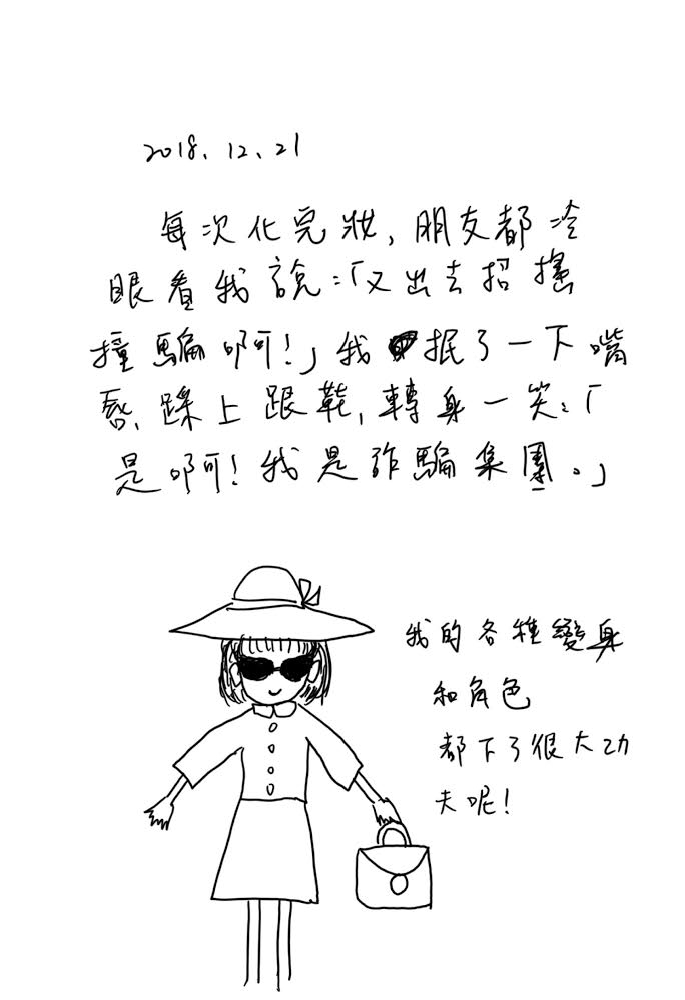 2018、12、21
每次化完妝,朋友都冷
眼看我說:「又出去招搖
撞騙啊!」我抿了一下嘴
唇,踩上跟鞋,轉身一笑:「
是啊!我是詐騙集團。」
我的各種變身
和角色
都下了很大功
夫呢!